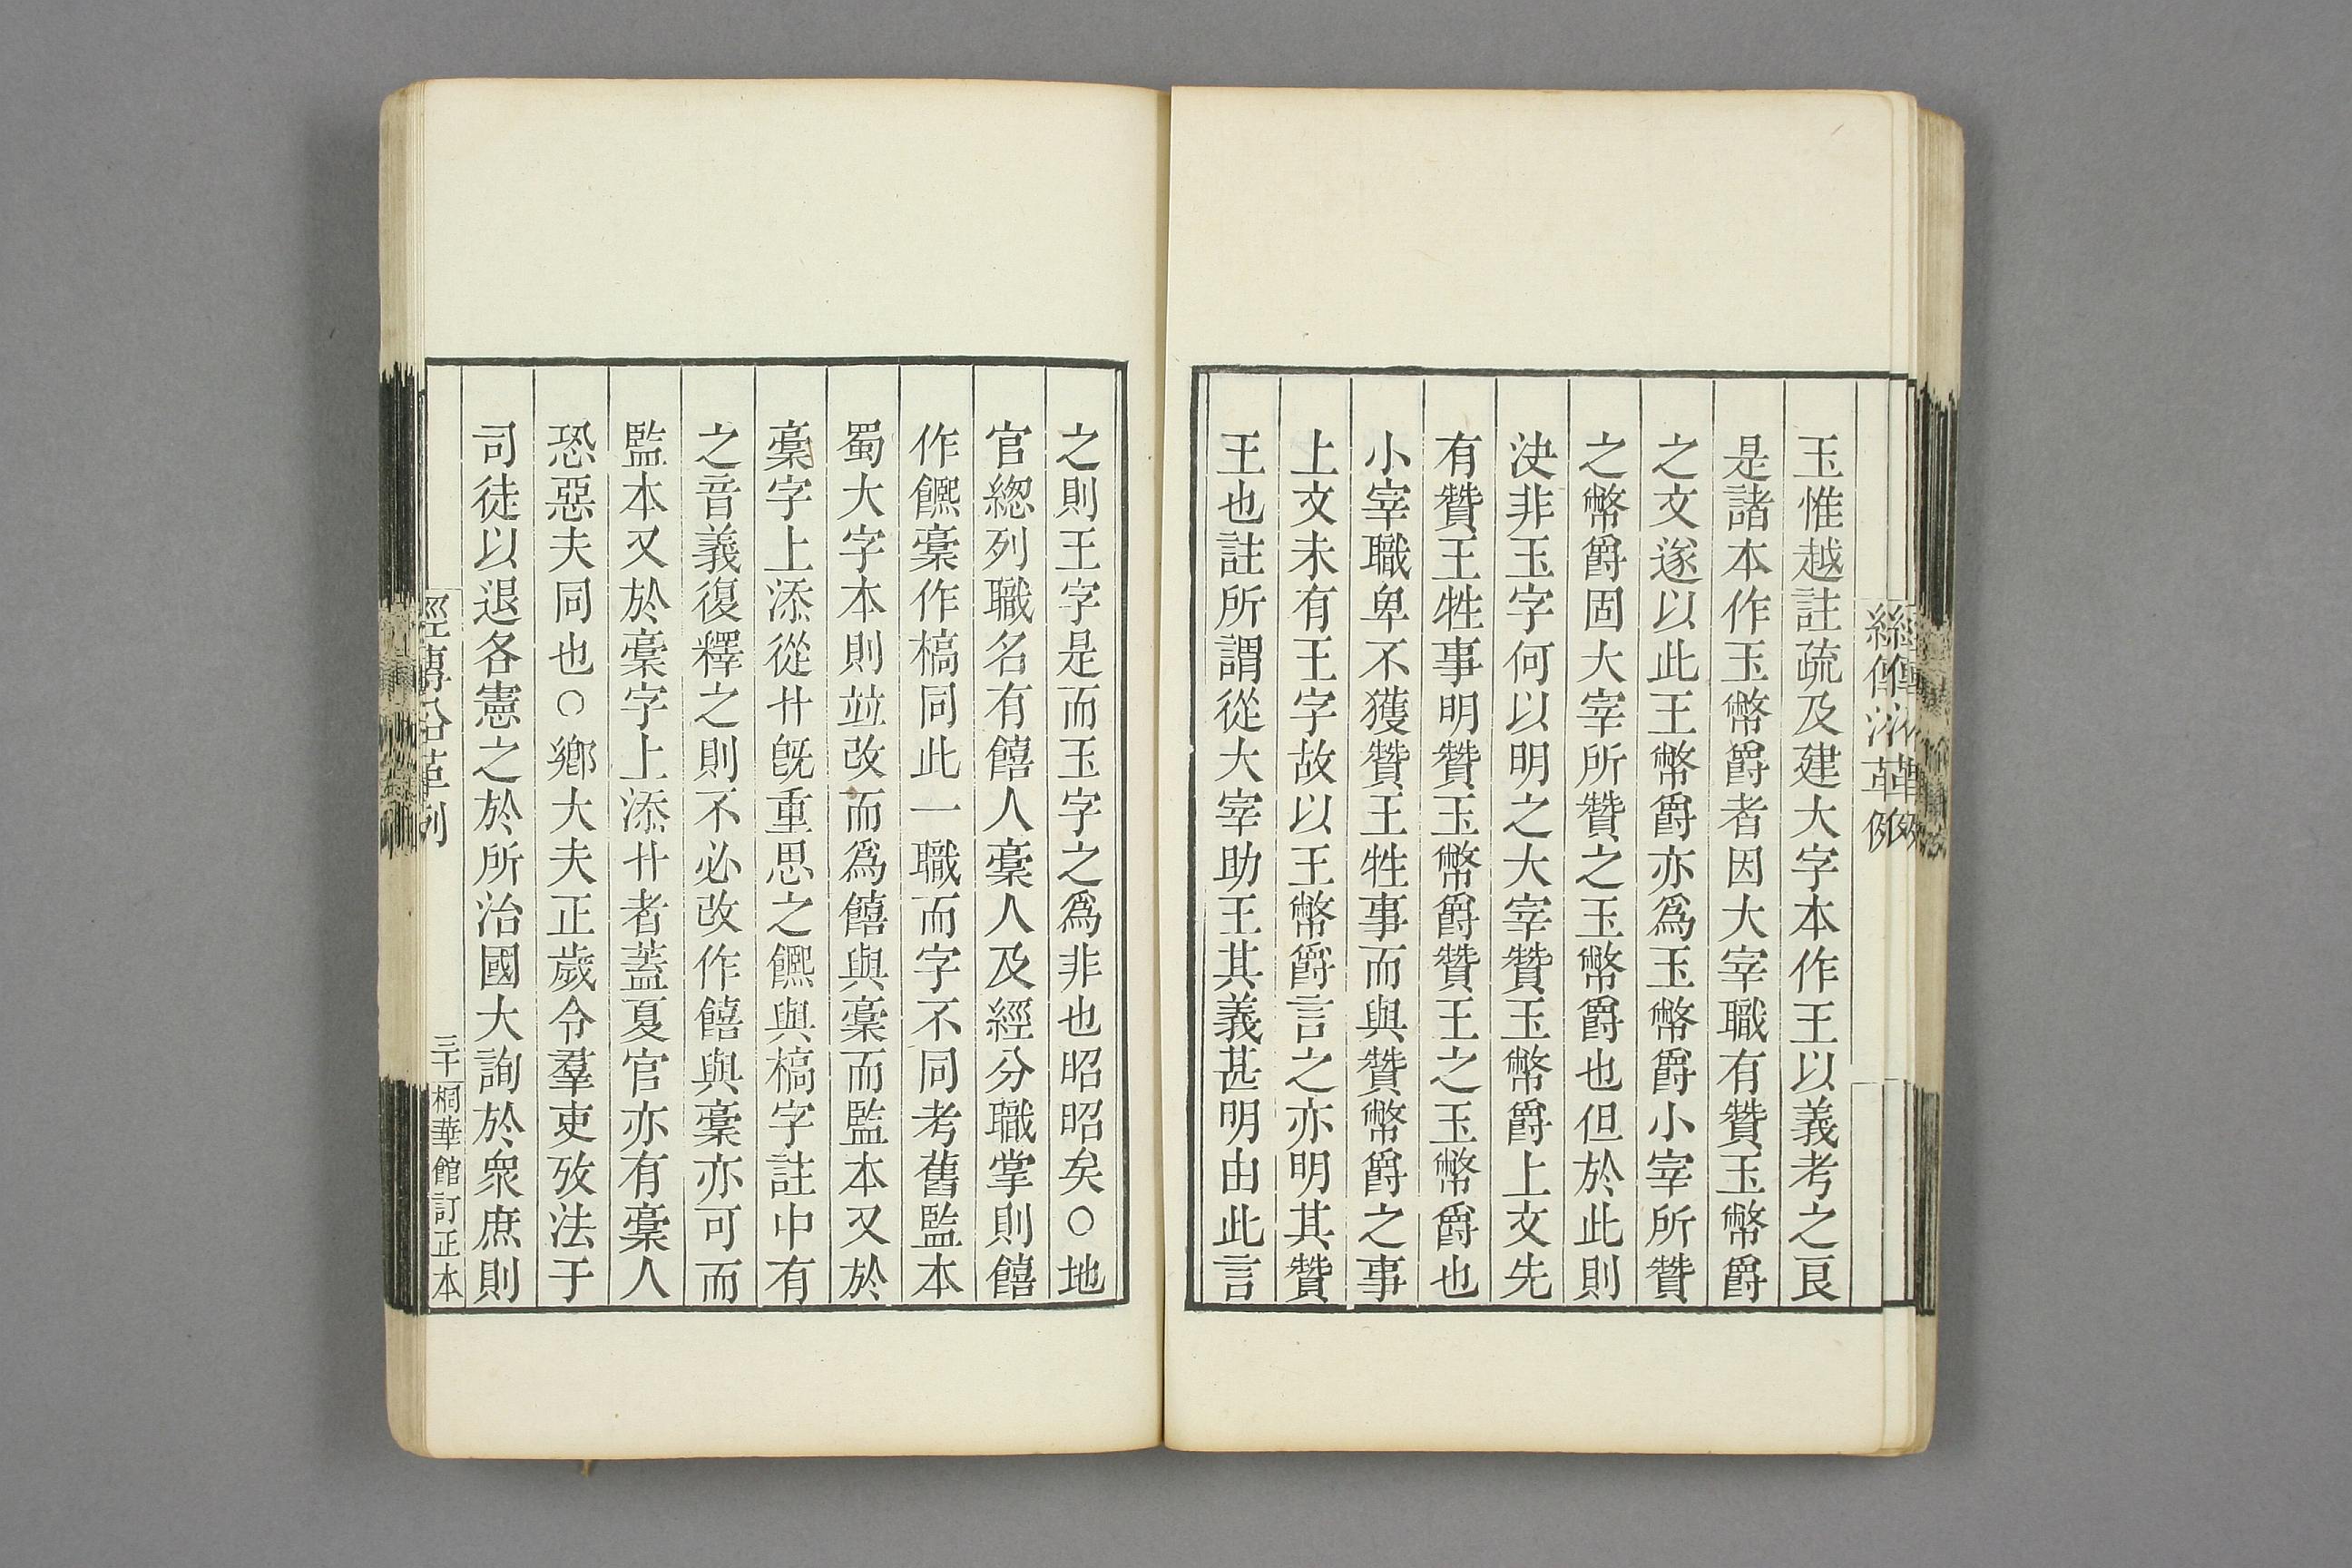 經傳沿革例
玉惟越註疏及建大字本作王以義考之艮
是諸本作玉幣爵者因大宰職有贊玉幣爵
之文遂以此王幣爵亦爲玉幣爵小宰所贊
之幣爵固大宰所贊之玉幣爵也但於此則
決非玉字何以明之大宰贊玉幣爵上文先
有贊王牲事明贊玉幣爵贊王之玉幣爵也
小宰職卑不獲贊王牲事而與贊幣爵之事
上文未有王字故以王幣爵言之亦明其贊
王也註所謂從大宰助王其義甚明由此言
之則王字是而玉字之爲非也昭昭矣○地
官總列職名有饎人稾人及經分職掌則饎
作䭒稾作槁同此一職而字不同考舊監本
蜀大字本則竝改而爲饎與稾而監本又於
稾字上添從卄旣重思之䭒與槁字註中有
之音義復釋之則不必改作饎與稾亦可而
監本又於稾字上添卄者蓋夏官亦有稾人
恐惡夫同也○鄉大夫正歲令羣吏攷法于
司徒以退各憲之於所治國大詢於衆庶則
經傳沿革例
三十
桐華館訂正本